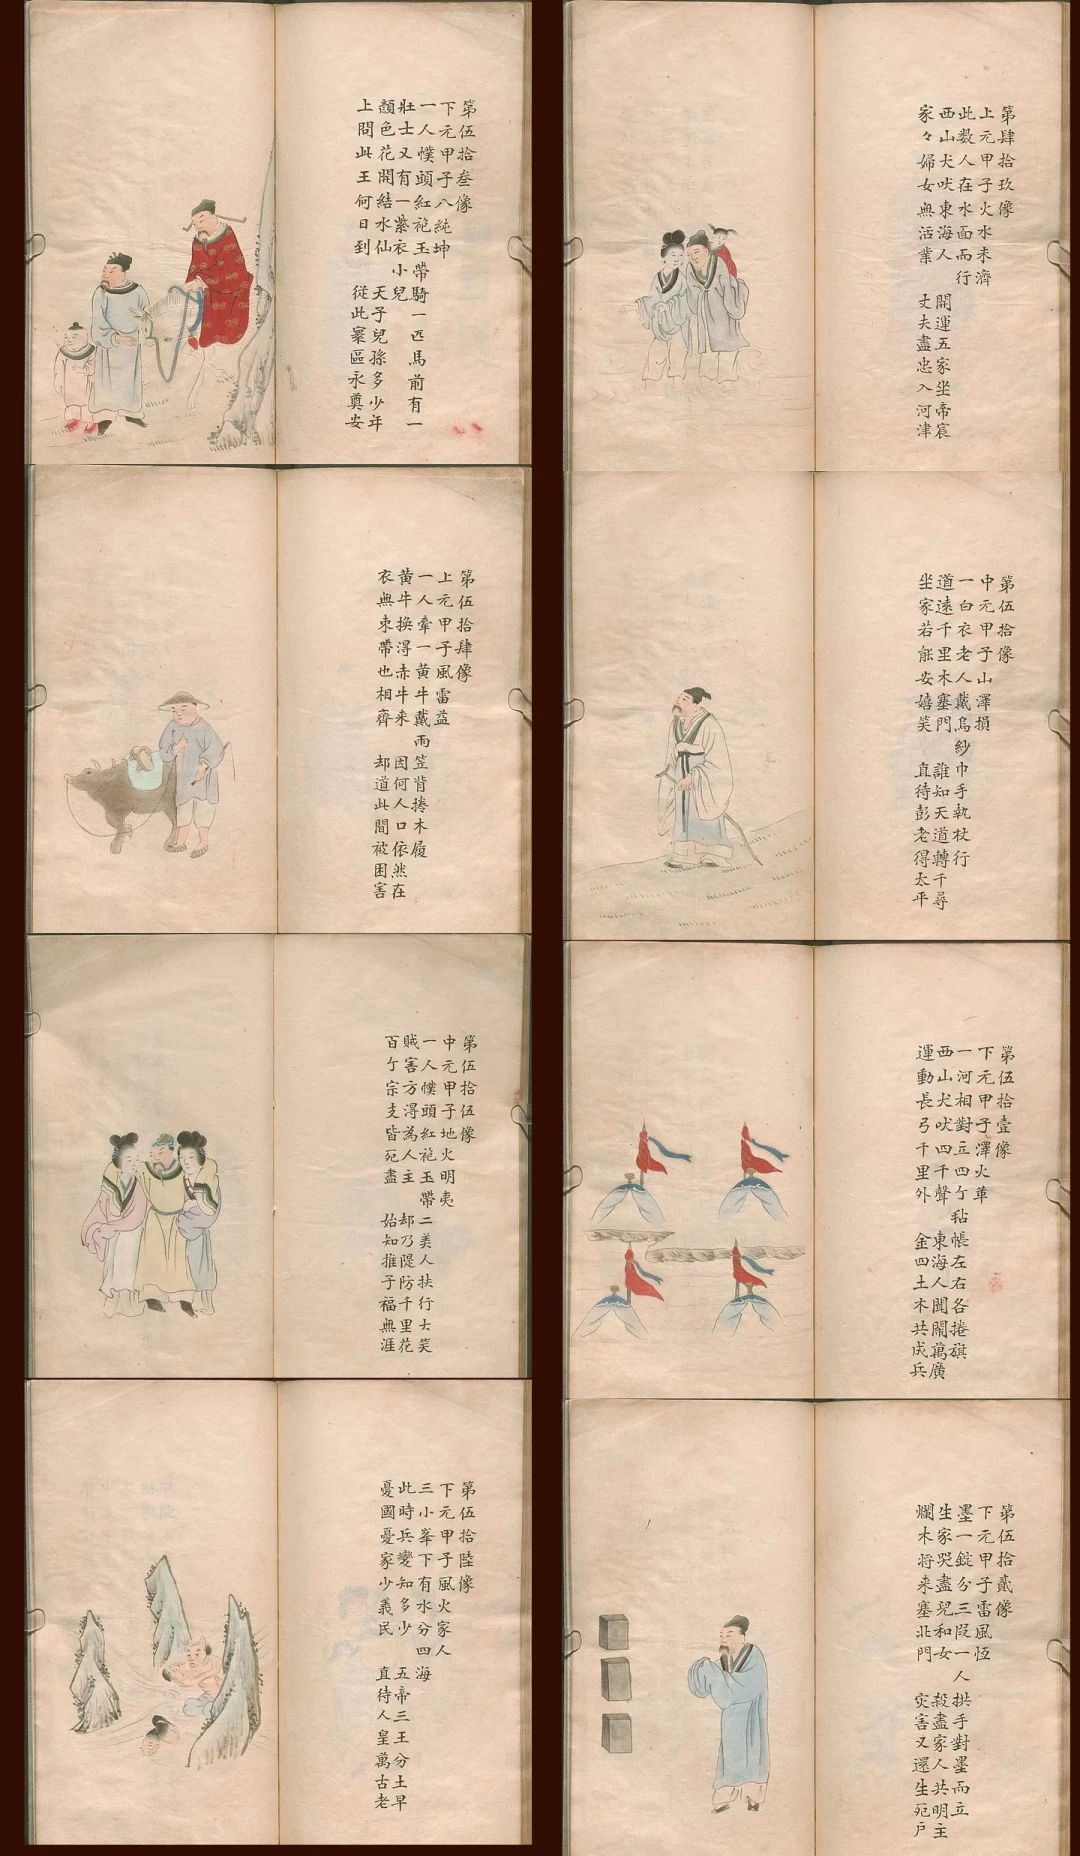 第肆拾玖像
上元甲子火水未濟
此数人在水面而行
西山犬吠東海人 開運五家坐帝宸
家々婦女無活業 丈夫盡忠入河津
第伍拾像
中元甲子山澤損
一白衣老人戴烏紗巾手執杖行
道遠千里木塞門 誰知天道轉千尋
坐家若能安嬉笑 直待彭老得太平
第伍拾壹像
下元甲子澤火革
一河相對立四亇毡帳左右各捲旗
西山犬吠四千聲 東海人聞鬧萬廣
運動長弓千里外 金四土木共成兵
第伍拾貳像
下元甲子雷風恆
墨一錠分三段一人拱手對墨而立
生家哭盡兒和女 殺盡家人共明主
爛木将来塞北門 灾害又還生死户
第伍拾叁像
下元甲子八純坤
一人幞頭紅袍玉帶騎一匹馬前有一
壯士又有一紫衣小兒
顏色花開結水仙 天子兒孫多少年
上問此王何日到 從此寰區永奠安
第伍拾肆像
上元甲子風雷益
一人牽一黄牛戴雨笠背捲木履
黄牛換得赤牛来 因何人口依然在
衣無束帶也相齊 却道此間被困害
第伍拾伍像
中元甲子地火明夷
一人幞頭紅袍玉帶二美人扶行大笑
賊害方得為人主 却乃隄防千里花
百亇宗支皆死盡 始知推子福無涯
第伍拾陸像
下元甲子風火家人
三小峯下有水分四海
此時兵變知多少 五帝三王分土早
憂國憂家少義民 直待人皇萬古老